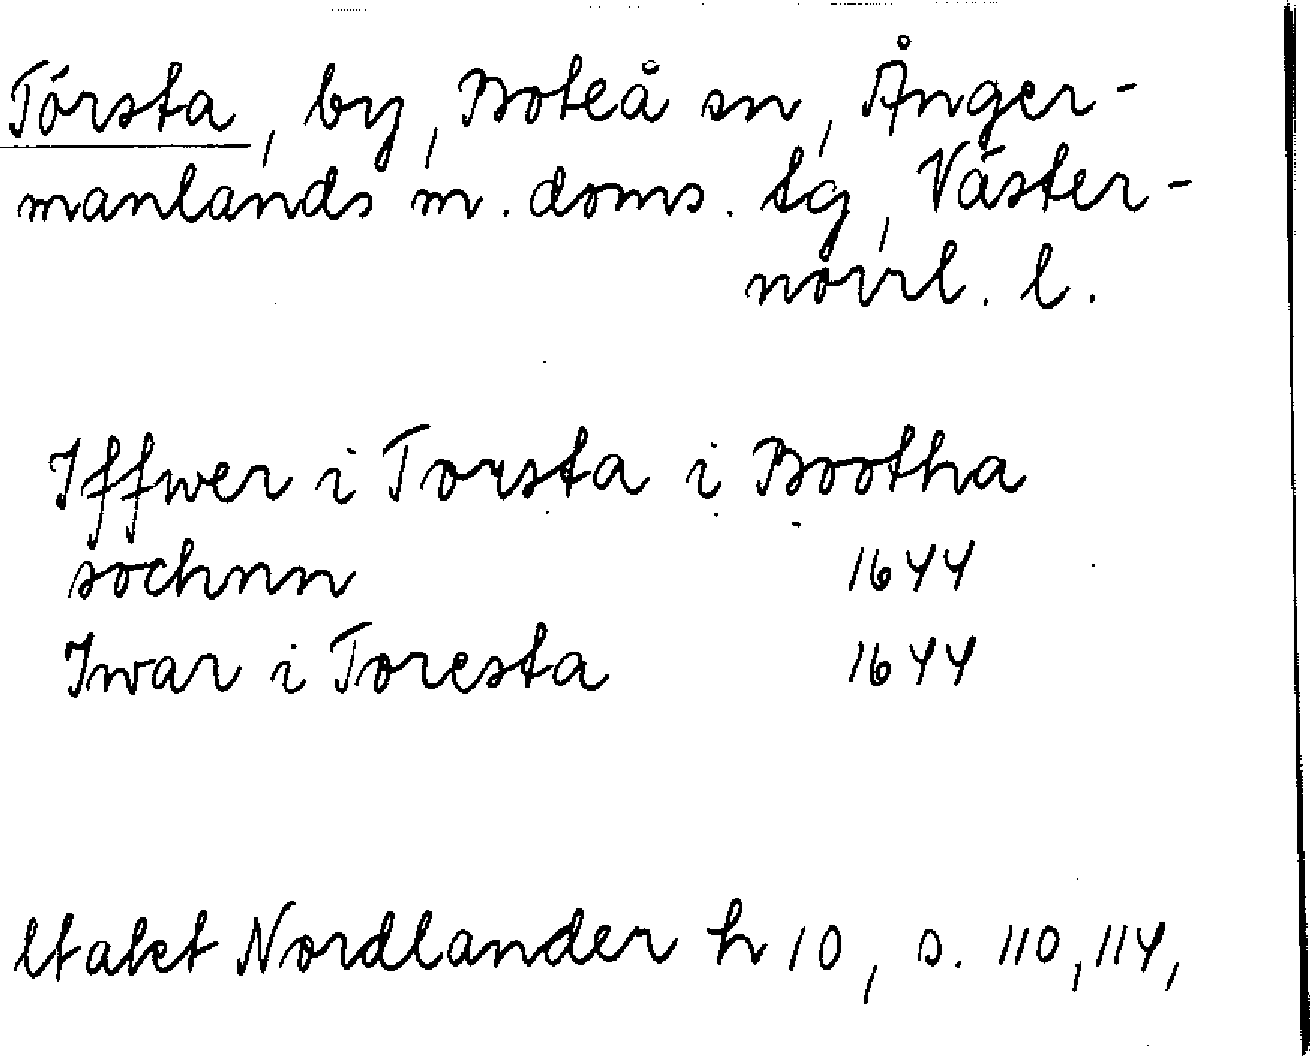 Törsta, by, Boteå sn, Ånger-
manlands m. doms. tg, Väster-
norrl. l.
Iffwer i Torsta i Bootha
sochnn 1644
Iwar i Toresta 1644
Nordlander h 10, s. 110, 114,